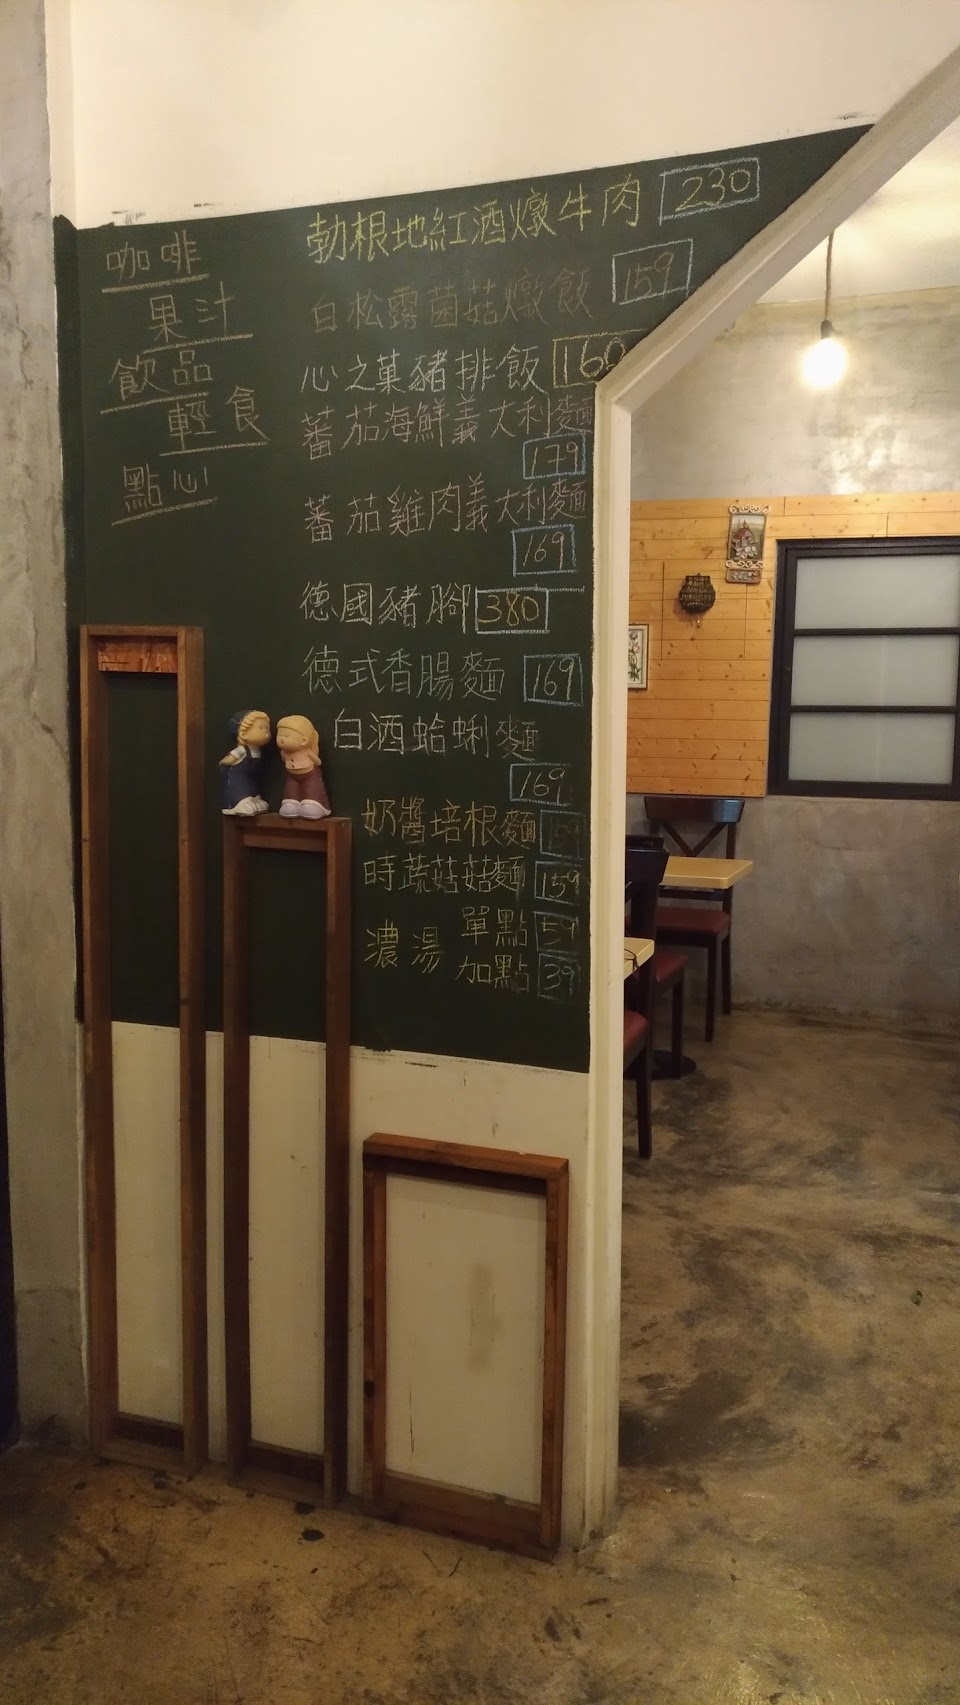 咖啡
果汁
飲品
輕食
點心
勃根地紅酒燉牛肉 230
白松露菌菇燉飯 159
心之菓豬排飯 160
蕃茄海鮮義大利麵
179
蕃茄雞肉義大利麵
169
德國豬腳 380
德式香腸麵 169
白酒蛤蜊麵
169
奶醬培根麵 159
時蔬菇菇麵 159
濃湯 單點 59
加點 39